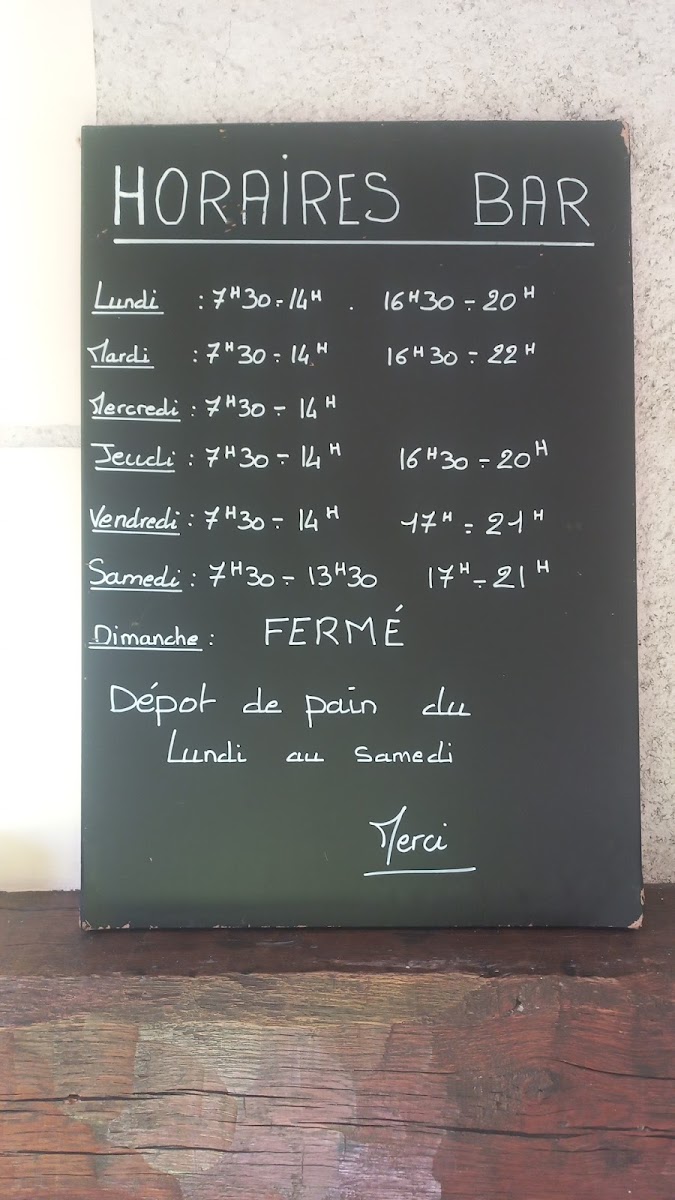 HORAIRES BAR
Lundi : 7H30 - 14H . 16H30 - 20H
Mardi : 7H30 - 14H 16H30 - 22H
Mercredi : 7H30 - 14H
Jeudi : 7H30 - 14H 16H30 - 20H
Vendredi : 7H30 - 14H 17H - 21H
Samedi : 7H30 - 13H30 17H - 21H
Dimanche : FERMÉ
Dépot de pain du
Lundi au samedi
Merci